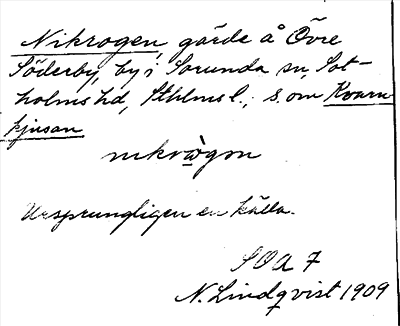 Nikrogen, gärde å Övre
Söderby, by i Sorunda sn, Sot-
holms hd, Sthlms l.; s. om Kvarn
kjusan
nikrògon
Ursprungligen en källa.
SOA 7
N. Lindqvist 1909